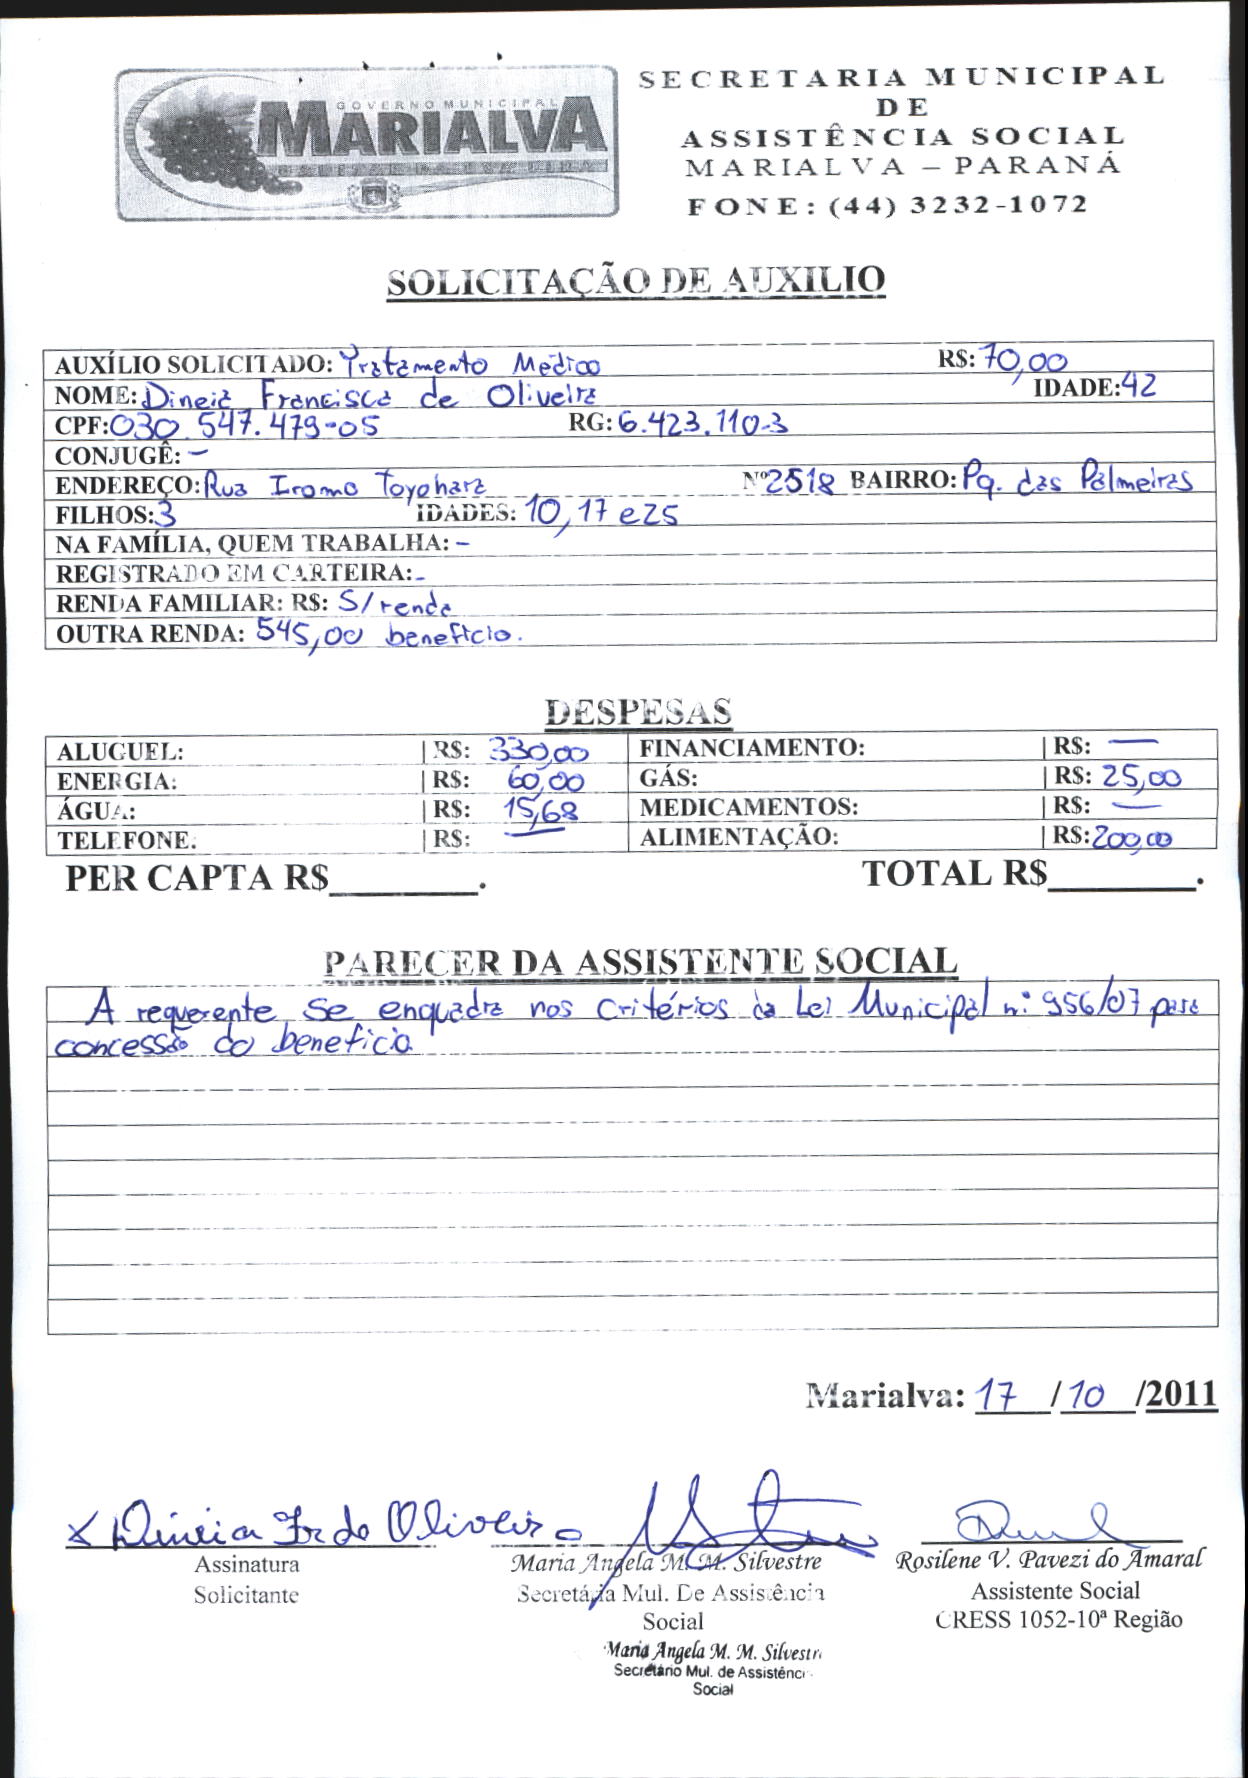 GOVERNO MUNICIPAL
MARIALVA
SECRETARIA MUNICIPAL
DE
ASSISTÊNCIA SOCIAL
MARIALVA – PARANÁ
FONE: (44) 3232-1072
SOLICITAÇÃO DE AUXILIO
AUXÍLIO SOLICITADO: Tratamento Médico R$: 70,00
NOME: Dineia Francisca de Oliveira IDADE: 42
CPF: 030.547.479-05 RG: 6.423.110-3
CONJUGÊ: –
ENDEREÇO: Rua Iromo Toyohara Nº 2518 BAIRRO: Pq. das Palmeiras
FILHOS: 3 IDADES: 10, 17 e 25
NA FAMÍLIA, QUEM TRABALHA: –
REGISTRADO EM CARTEIRA: -
RENDA FAMILIAR: R$: S/ renda
OUTRA RENDA: 545,00 beneficio.
DESPESAS
ALUGUEL: R$: 330,00 FINANCIAMENTO: R$: —
ENERGIA: R$: 60,00 GÁS: R$: 25,00
ÁGUA: R$: 15,68 MEDICAMENTOS: R$: —
TELEFONE: R$: — ALIMENTAÇÃO: R$: 200,00
PER CAPTA R$________. TOTAL R$________.
PARECER DA ASSISTENTE SOCIAL
A requerente se enquadra nos critérios da Lei Municipal nº 956/07 para
concessão do beneficio
Marialva: 17 /10 /2011
x Dineia Fr de Oliveira
Assinatura Maria Angela M. M. Silvestre Rosilene V. Pavezi do Amaral
Solicitante Secretária Mul. De Assistência Assistente Social
Social CRESS 1052-10ª Região
Maria Angela M. M. Silvestre
Secretário Mul. de Assistênci
Social